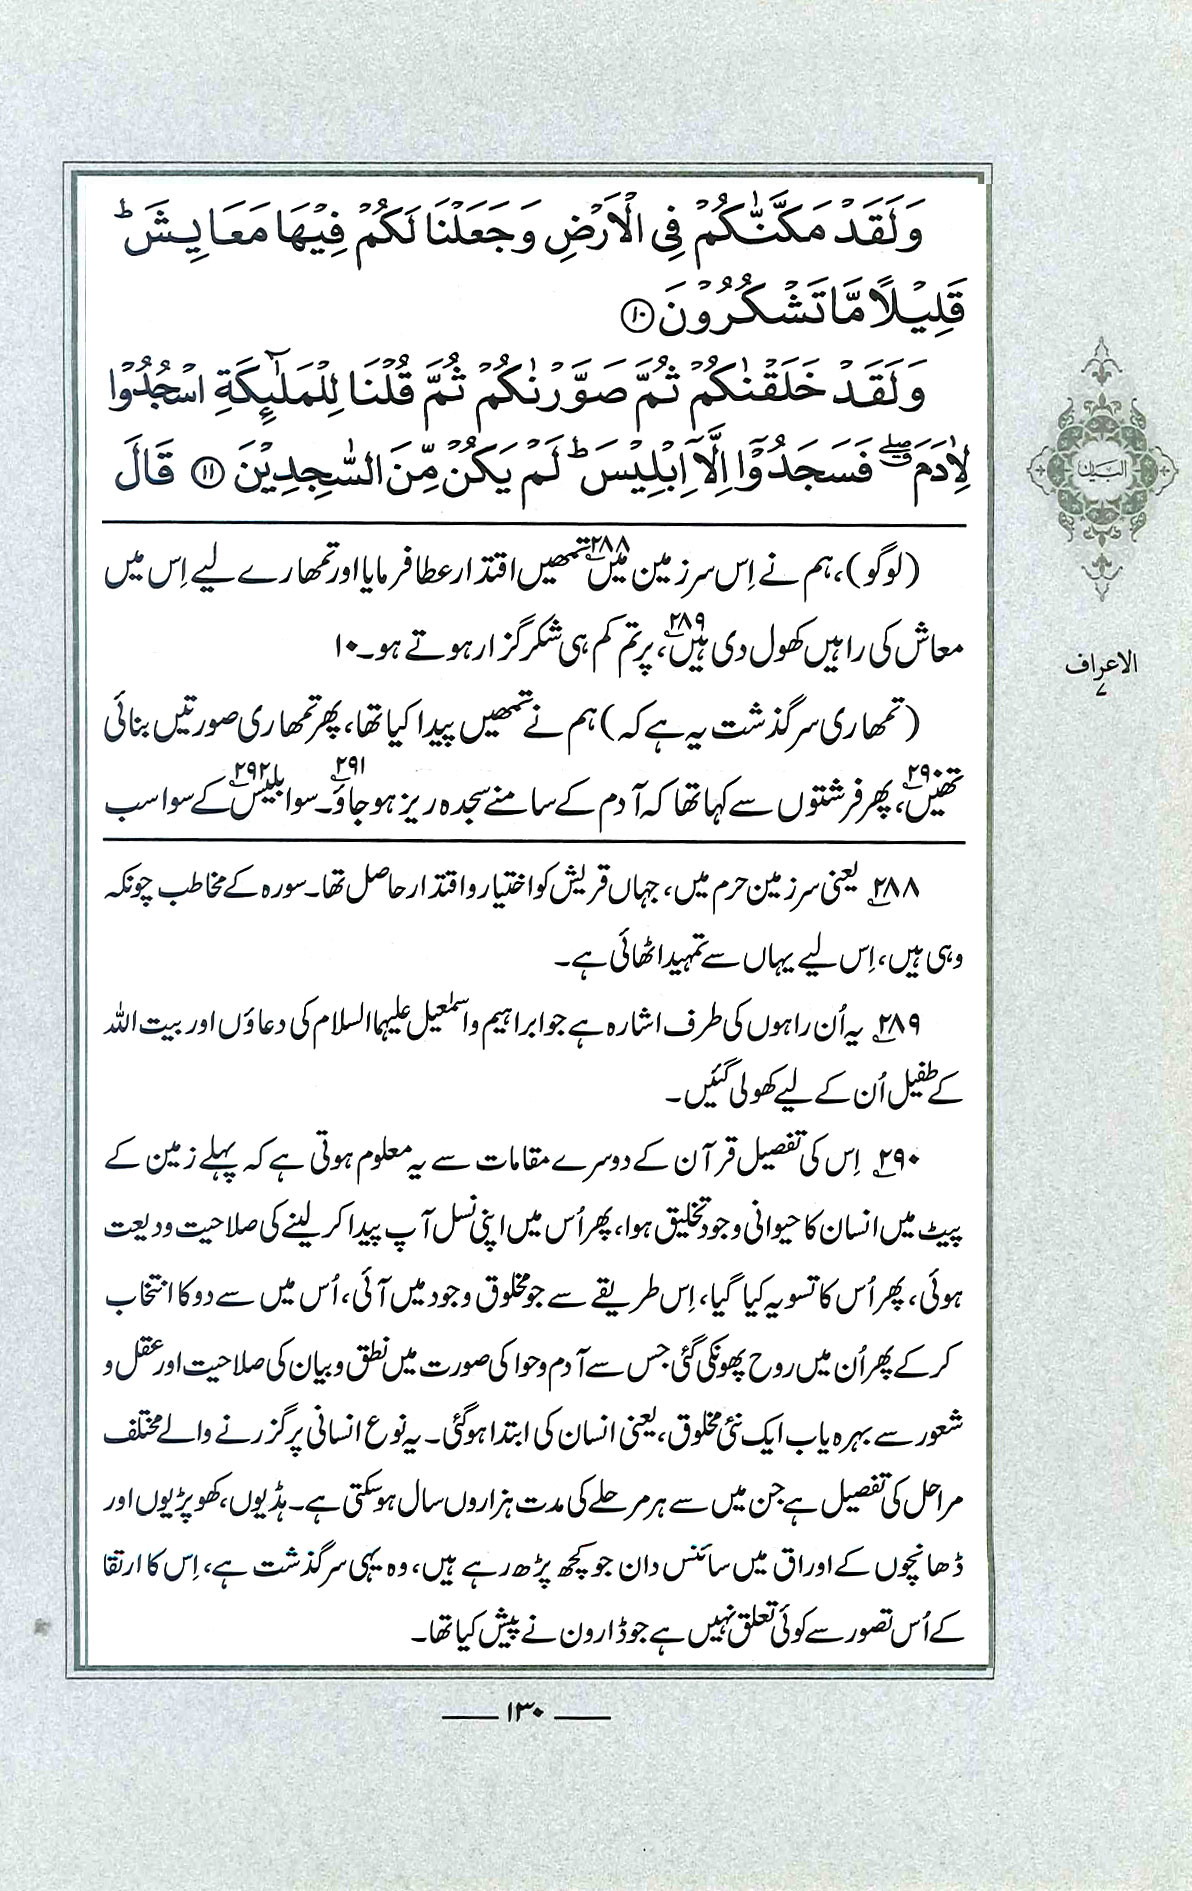 وَلَقَدْ مَكَّنّٰكُمْ فِی الْاَرْضِ وَجَعَلْنَا لَكُمْ فِیْهَا مَعَایِشَ ؕ
قَلِیْلًا مَّا تَشْكُرُوْنَ ﴿۱۰﴾
وَلَقَدْ خَلَقْنٰكُمْ ثُمَّ صَوَّرْنٰكُمْ ثُمَّ قُلْنَا لِلْمَلٰٓئِكَةِ اسْجُدُوْا
لِاٰدَمَ ۖۗ فَسَجَدُوْۤا اِلَّاۤ اِبْلِیْسَ ؕ لَمْ یَكُنْ مِّنَ السّٰجِدِیْنَ ﴿۱۱﴾ قَالَ
(لوگو)، ہم نے اِس سرزمین میں۲۸۸ تمھیں اقتدار عطا فرمایا اور تمھارے لیے اِس میں
معاش کی راہیں کھول دی ہیں۲۸۹، پر تم کم ہی شکر گزار ہوتے ہو۔ ۱۰
(تمھاری سرگذشت یہ ہے کہ) ہم نے تمھیں پیدا کیا تھا، پھر تمھاری صورتیں بنائی
تھیں۲۹۰، پھر فرشتوں سے کہا تھا کہ آدم کے سامنے سجدہ ریز ہو جاؤ۲۹۱۔ سو ابلیس۲۹۲ کے سوا سب
۲۸۸ یعنی سرزمین حرم میں، جہاں قریش کو اختیار و اقتدار حاصل تھا۔ سورہ کے مخاطب چونکہ
وہی ہیں، اِس لیے یہاں سے تمہید اٹھائی ہے۔
۲۸۹ یہ اُن راہوں کی طرف اشارہ ہے جو ابراہیم و اسمٰعیل علیہما السلام کی دعاؤں اور بیت اللہ
کے طفیل اُن کے لیے کھولی گئیں۔
۲۹۰ اِس کی تفصیل قرآن کے دوسرے مقامات سے یہ معلوم ہوتی ہے کہ پہلے زمین کے
پیٹ میں انسان کا حیوانی وجود تخلیق ہوا، پھر اُس میں اپنی نسل آپ پیدا کر لینے کی صلاحیت ودیعت
ہوئی، پھر اُس کا تسویہ کیا گیا، اِس طریقے سے جو مخلوق وجود میں آئی، اُس میں سے دو کا انتخاب
کر کے پھر اُن میں روح پھونکی گئی جس سے آدم و حوا کی صورت میں نطق و بیان کی صلاحیت اور عقل و
شعور سے بہرہ یاب ایک نئی مخلوق، یعنی انسان کی ابتدا ہو گئی۔ یہ نوع انسانی پر گزرنے والے مختلف
مراحل کی تفصیل ہے جن میں سے ہر مرحلے کی مدت ہزاروں سال ہو سکتی ہے۔ ہڈیوں، کھوپڑیوں اور
ڈھانچوں کے اوراق میں سائنس دان جو کچھ پڑھ رہے ہیں، وہ یہی سرگذشت ہے، اِس کا ارتقا
کے اُس تصور سے کوئی تعلق نہیں ہے جو ڈارون نے پیش کیا تھا۔
۱۳۰
البیان
الاعراف
۷